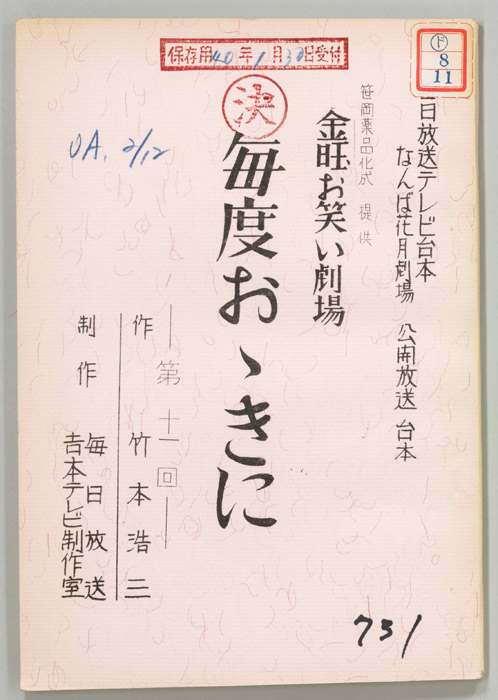 保存用 40年1月30日受付
ド
8
11
決
日放送テレビ台本
なんば花月劇場 公開放送 台本
笹岡薬品化成 提供
金旺お笑い劇場
毎度おゝきに
OA. 2/12
第十一回
作 竹本浩三
制作 毎日放送
吉本テレビ制作室
731